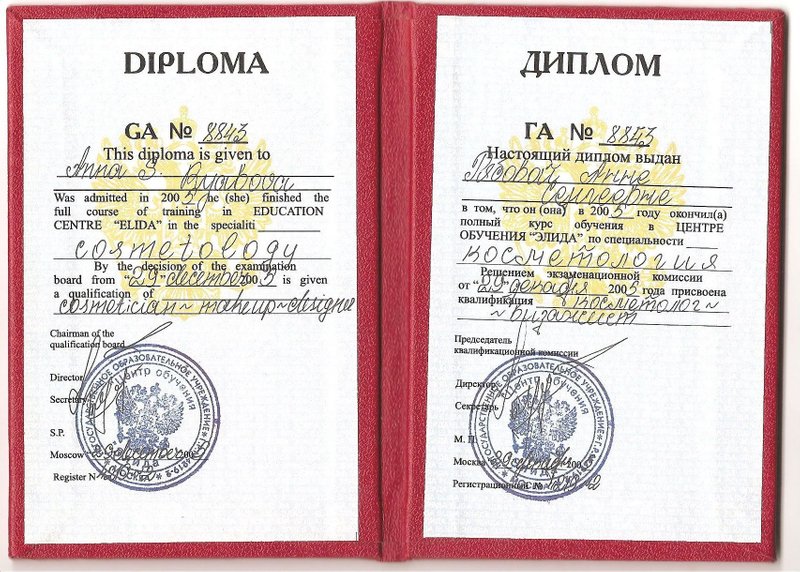 DIPLOMA
GA № 8843
This diploma is given to
Anna S.
Ryabova
Was admitted in 2005 he (she) finished the
full course of training in EDUCATION
CENTRE “ELIDA” in the specialiti
cosmetology
By the decision of the examination
board from “29” december 2005 is given
a qualification of
cosmetician-makeup-designer
Chairman of the
qualification board
Director
Secretary
S.P.
Moscow 29 december 2005
Register N
Центр обучения
ДИПЛОМ
ГА № 8843
Настоящий диплом выдан
Рябовой Анне
Сергеевне
в том, что он (она) в 2005 году окончил(а)
полный курс обучения в ЦЕНТРЕ
ОБУЧЕНИЯ “ЭЛИДА” по специальности
косметология
Решением экзаменационной комиссии
от “29” декабря 2005 года присвоена
квалификация косметолог-
-визажист
Председатель
квалификационной комиссии
Директор
Секретарь
М. П.
Москва 29 декабря 200
Регистрационный №
Центр обучения